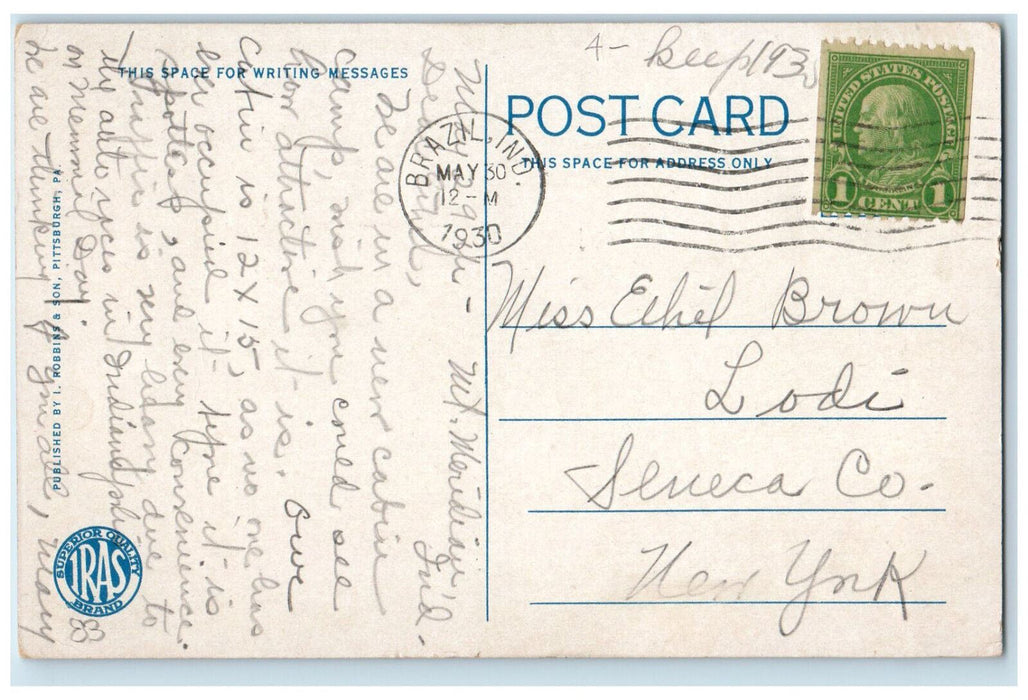 4- keep 1930
THIS SPACE FOR WRITING MESSAGES
POST CARD
THIS SPACE FOR ADDRESS ONLY
BRAZIL, IND.
MAY 30
12-M
1930
UNITED STATES POSTAGE
FRANKLIN
1 CENT 1
Miss Ethel Brown
Lodi
Seneca Co.
New York
May 29th - Mt. Meridian Ind.
Dear
We are in a new cabin
camp, wish you could see
how attractive it is. Our
cabin is 12 x 15, as no one has
ever occupied it before it is
spotless, and every convenience.
Traffic is very heavy due to
the auto races in Indianapolis
on Memorial Day.
We are thinking of you all, May
PUBLISHED BY I. ROBBINS & SON, PITTSBURGH, PA.
SUPERIOR QUALITY
IRAS
BRAND